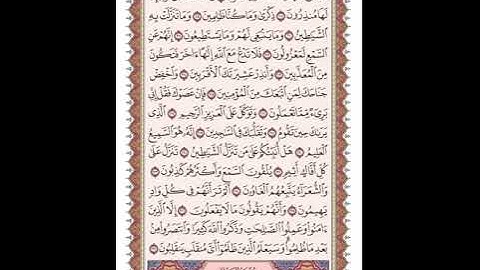 لَهَا مُنذِرُونَ ۝ ذِكْرَىٰ وَمَا كُنَّا ظَٰلِمِينَ ۝ وَمَا تَنَزَّلَتْ بِهِ
ٱلشَّيَٰطِينُ ۝ وَمَا يَنۢبَغِى لَهُمْ وَمَا يَسْتَطِيعُونَ ۝ إِنَّهُمْ عَنِ
ٱلسَّمْعِ لَمَعْزُولُونَ ۝ فَلَا تَدْعُ مَعَ ٱللَّهِ إِلَٰهًا ءَاخَرَ فَتَكُونَ
مِنَ ٱلْمُعَذَّبِينَ ۝ وَأَنذِرْ عَشِيرَتَكَ ٱلْأَقْرَبِينَ ۝ وَٱخْفِضْ
جَنَاحَكَ لِمَنِ ٱتَّبَعَكَ مِنَ ٱلْمُؤْمِنِينَ ۝ فَإِنْ عَصَوْكَ فَقُلْ إِنِّى
بَرِىٓءٌ مِّمَّا تَعْمَلُونَ ۝ وَتَوَكَّلْ عَلَى ٱلْعَزِيزِ ٱلرَّحِيمِ ۝ ٱلَّذِى
يَرَىٰكَ حِينَ تَقُومُ ۝ وَتَقَلُّبَكَ فِى ٱلسَّٰجِدِينَ ۝ إِنَّهُۥ هُوَ ٱلسَّمِيعُ
ٱلْعَلِيمُ ۝ هَلْ أُنَبِّئُكُمْ عَلَىٰ مَن تَنَزَّلُ ٱلشَّيَٰطِينُ ۝ تَنَزَّلُ عَلَىٰ
كُلِّ أَفَّاكٍ أَثِيمٍ ۝ يُلْقُونَ ٱلسَّمْعَ وَأَكْثَرُهُمْ كَٰذِبُونَ ۝
وَٱلشُّعَرَآءُ يَتَّبِعُهُمُ ٱلْغَاوُۥنَ ۝ أَلَمْ تَرَ أَنَّهُمْ فِى كُلِّ وَادٍ
يَهِيمُونَ ۝ وَأَنَّهُمْ يَقُولُونَ مَا لَا يَفْعَلُونَ ۝ إِلَّا ٱلَّذِينَ
ءَامَنُوا۟ وَعَمِلُوا۟ ٱلصَّٰلِحَٰتِ وَذَكَرُوا۟ ٱللَّهَ كَثِيرًا وَٱنتَصَرُوا۟ مِنۢ
بَعْدِ مَا ظُلِمُوا۟ وَسَيَعْلَمُ ٱلَّذِينَ ظَلَمُوٓا۟ أَىَّ مُنقَلَبٍ يَنقَلِبُونَ ۝